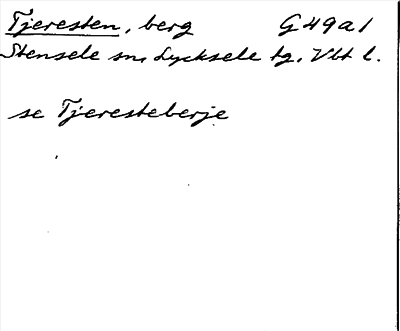 Tjeresten, berg G49a1
Stensele sn, Lycksele tg, Vbt l.
se Tjeresteberje